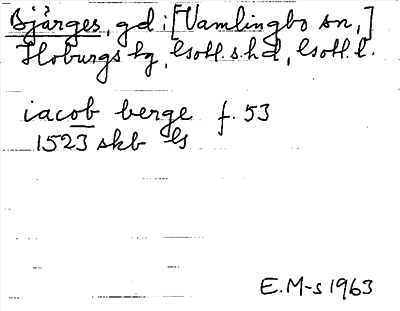 Bjärges, gd i [Vamlingbo sn,]
Hoburgs kg, Gotl. s. hd, Gotl. l.
iacob berge f. 53
1523 skb G
E.M-s 1963